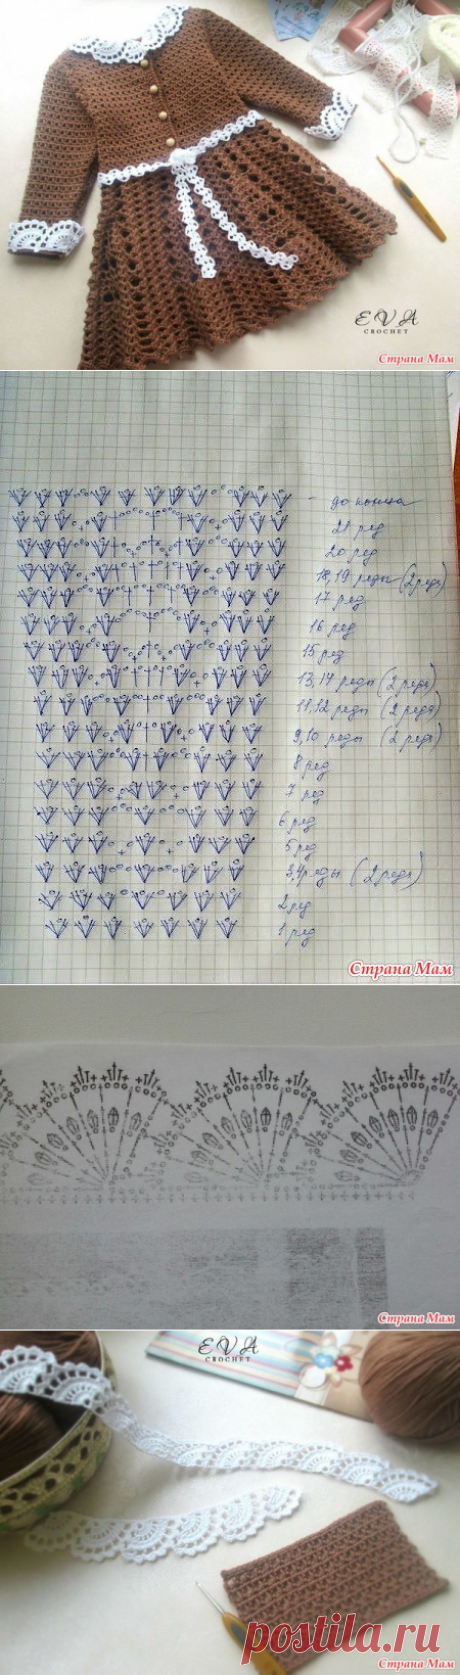 EVA
CROCHET
Страна Мам
- до конца
21 ряд
20 ряд
18,19 ряды (2 ряда)
17 ряд
16 ряд
15 ряд
13,14 ряды (2 ряда)
11,12 ряды (2 ряда)
9,10 ряды (2 ряда)
8 ряд
7 ряд
6 ряд
5 ряд
3,4 ряды (2 ряда)
2 ряд
1 ряд
Страна Мам
Страна Мам
EVA
CROCHET
postila.ru
Страна Мам